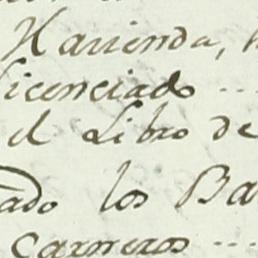 Hacienda,
licenciado
el Libro de
ado los Ba
Carneros